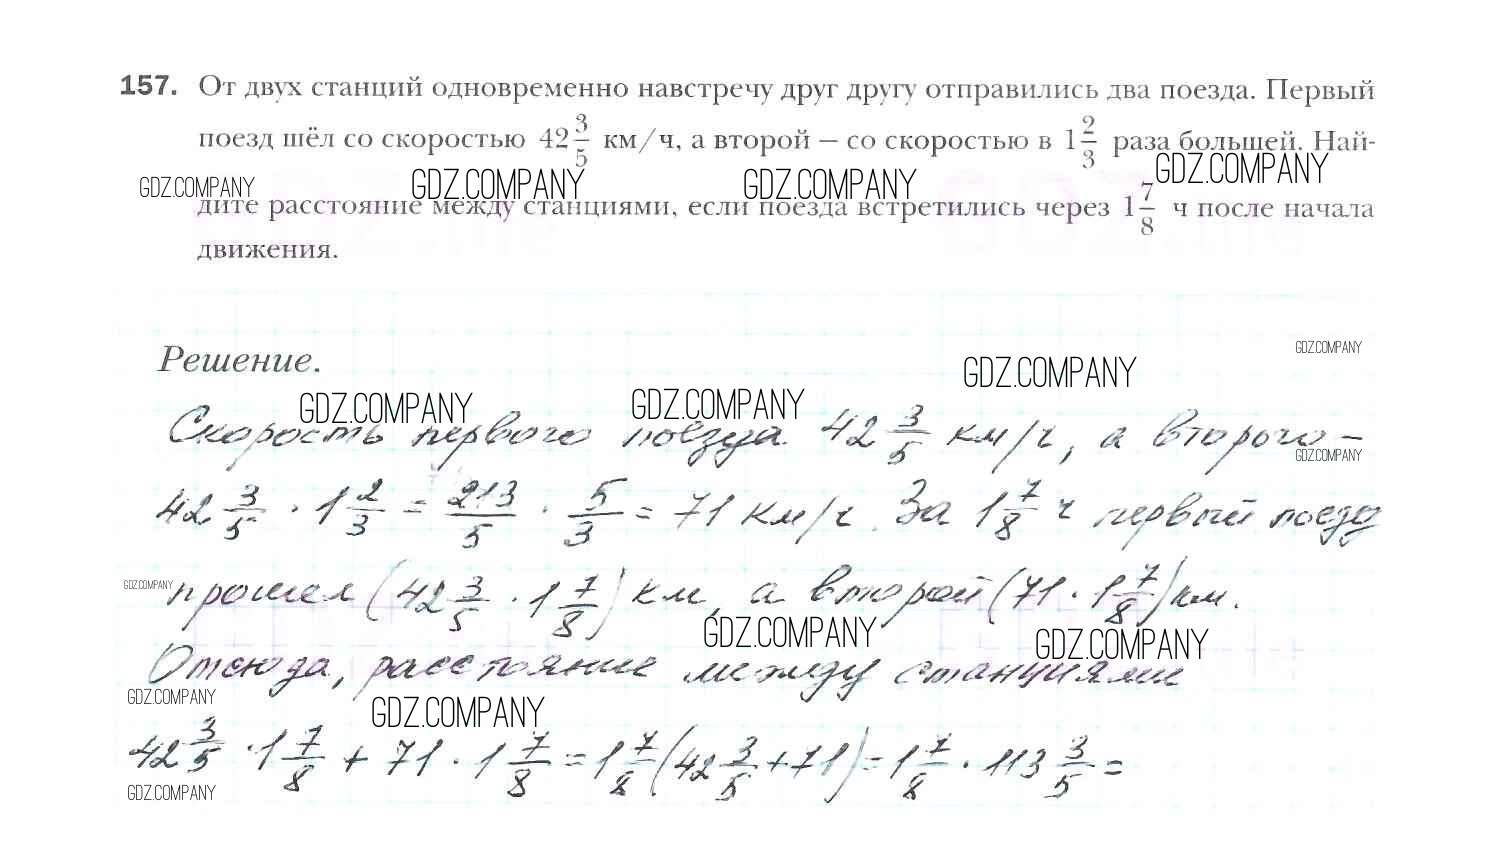 157. От двух станций одновременно навстречу друг другу отправились два поезда. Первый
поезд шёл со скоростью 42 3/5 км/ч, а второй — со скоростью в 1 2/3 раза большей. Най-
GDZ.COMPANY GDZ.COMPANY GDZ.COMPANY GDZ.COMPANY
дите расстояние между станциями, если поезда встретились через 1 7/8 ч после начала
движения.
GDZ.COMPANY
Решение.
GDZ.COMPANY
GDZ.COMPANY GDZ.COMPANY
Скорость первого поезда 42 3/5 км/ч, а второго –
GDZ.COMPANY
42 3/5 · 1 2/3 = 213/5 · 5/3 = 71 км/ч. За 1 7/8 ч первый поезд
GDZ.COMPANY
прошел (42 3/5 · 1 7/8) км, а второй (71 · 1 7/8) км.
GDZ.COMPANY GDZ.COMPANY
Отсюда, расстояние между станциями
GDZ.COMPANY GDZ.COMPANY
42 3/5 · 1 7/8 + 71 · 1 7/8 = 1 7/8 (42 3/5 + 71) = 1 7/8 · 113 3/5 =
GDZ.COMPANY